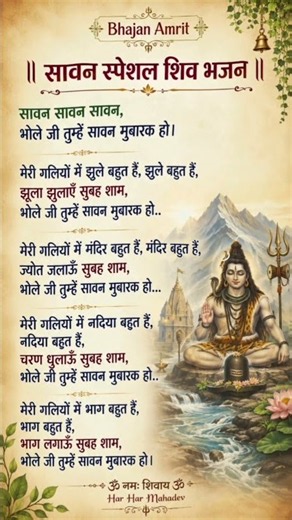 Bhajan Amrit
॥ सावन स्पेशल शिव भजन ॥
सावन सावन सावन,
भोले जी तुम्हें सावन मुबारक हो।
मेरी गलियों में झुले बहुत हैं, झुले बहुत हैं,
झूला झुलाएँ सुबह शाम,
भोले जी तुम्हें सावन मुबारक हो..
मेरी गलियों में मंदिर बहुत हैं, मंदिर बहुत हैं,
ज्योत जलाऊँ सुबह शाम,
भोले जी तुम्हें सावन मुबारक हो...
मेरी गलियों में नदिया बहुत हैं,
नदिया बहुत हैं,
चरण धुलाऊँ सुबह शाम,
भोले जी तुम्हें सावन मुबारक हो..
मेरी गलियों में भाग बहुत हैं,
भाग बहुत हैं,
भाग लगाऊँ सुबह शाम,
भोले जी तुम्हें सावन मुबारक हो।
ॐ नमः शिवाय ॐ
Har Har Mahadev